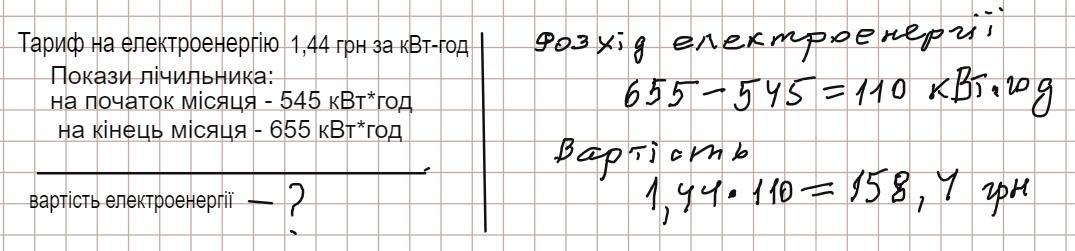 Тариф на електроенергію 1,44 грн за кВт-год
Покази лічильника:
на початок місяця - 545 кВт*год
на кінець місяця - 655 кВт*год
вартість електроенергії - ?
Розхід електроенергії
655 - 545 = 110 кВт·год
Вартість
1,44 · 110 = 158,4 грн